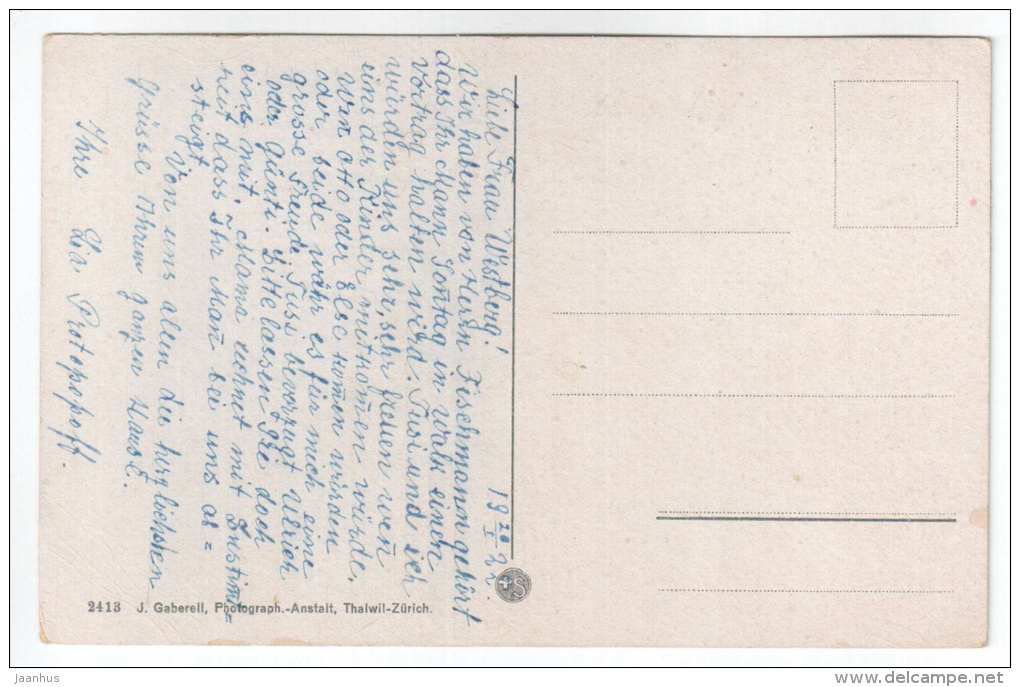 Liebe Frau Westberg!
19 20/I 22.
Wir haben von Herrn Fischmann gehört
dass Ihr Mann Sontag in Walk einen
Vortrag halten wird. Tusi und ich
würden uns sehr, sehr freuen wen̅
uns der Kinder mitkom̅en würde.
Wen Otto oder kom̅en würden
oder beide währ es für mich eine
grosse Freude, Tuss bevorzugt Ulrich
oder Günti. Bitte lassen Sie doch
eins mit. Mama rechnet mit Bestim̅=
heit dass Ihr Man̅ bei uns ab=
steigt.
Von uns alen die herzlichsten
Grüsse Ihrem ganzen Hause.
Ihre Lia Protopopoff.
2413 J. Gaberell, Photograph.-Anstalt, Thalwil-Zürich.
S
jaanhus
www.delcampe.net